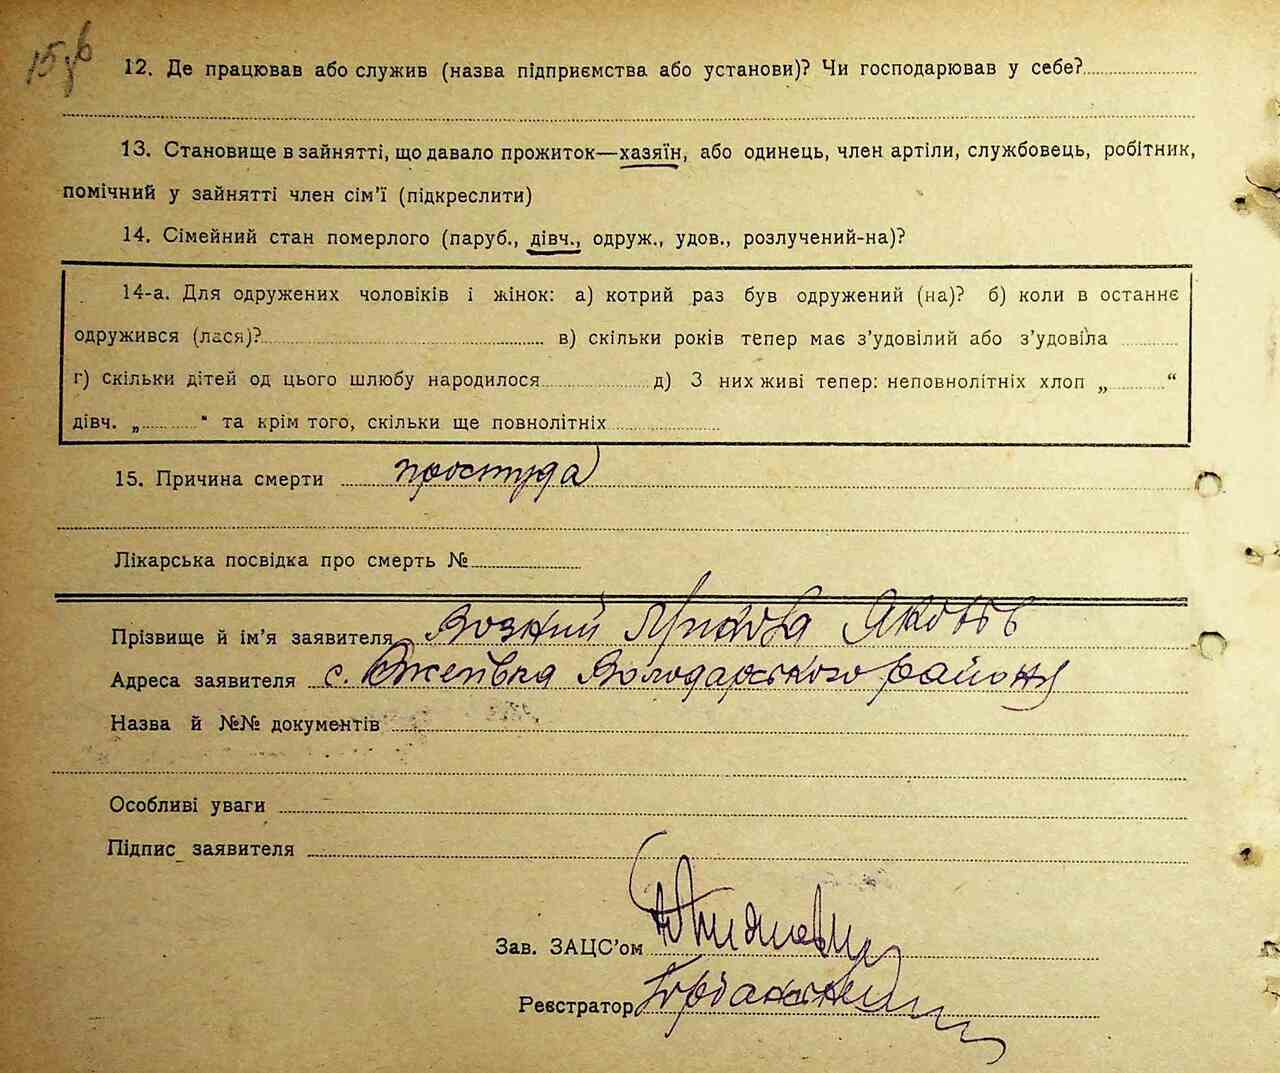 12. Де працював або служив (назва підприємства або установи)? Чи господарював у себе?
13. Становище в зайнятті, що давало прожиток—хазяїн, або одинець, член артіли, службовець, робітник,
помічний у зайнятті член сім'ї (підкреслити)
14. Сімейний стан померлого (паруб., дівч., одруж., удов., розлучений-на)?
14-а. Для одружених чоловіків і жінок: а) котрий раз був одружений (на)? б) коли в останнє
одружився (лася)? в) скільки років тепер має з'удовілий або з'удовіла
г) скільки дітей од цього шлюбу народилося д) З них живі тепер: неповнолітніх хлоп „ “
дівч. „ “ та крім того, скільки ще повнолітніх
15. Причина смерти простуда
Лікарська посвідка про смерть №
Прізвище й ім'я заявителя Возний Яков
Адреса заявителя с. Володарського района
Назва й №№ документів
Особливі уваги
Підпис заявителя
Зав. ЗАЦС'ом
Реєстратор